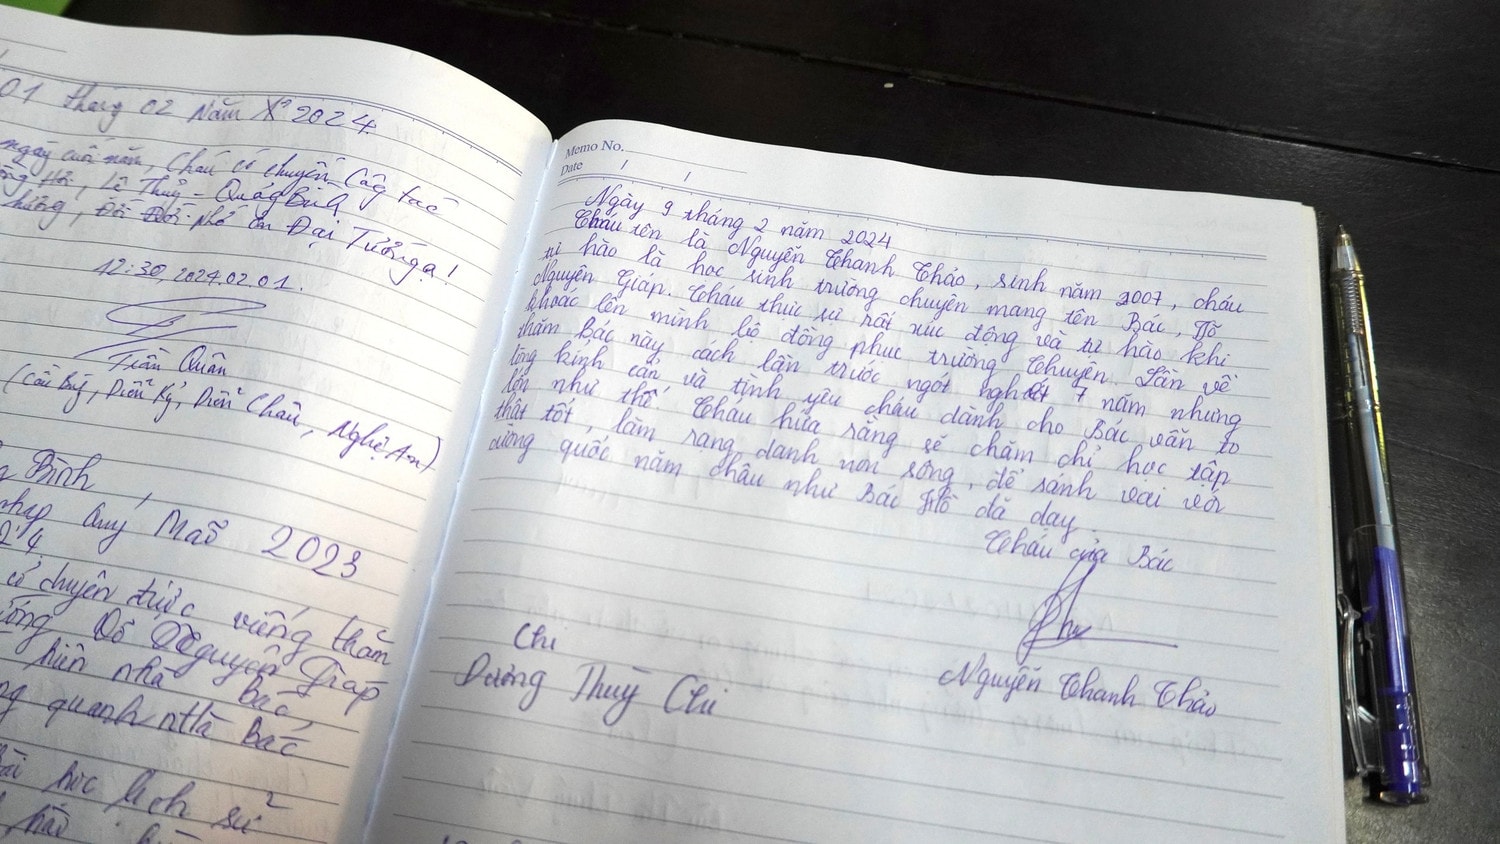 01 tháng 02 Năm 2024
ngày cuối năm, Cháu có chuyến Công tác
Lê Thuỷ - Quảng Bình
Đại Tướng ạ!
12:30, 2024.02.01.
Trần Quân
(Cầu Bùng, Diễn Kỷ, Diễn Châu, Nghệ An)
Bình,
Quý Mão 2023
có chuyến được viếng thăm
Võ Nguyên Giáp
hiên nhà bác,
quanh nhà bác
học lịch sử
Memo No.
Date / /
Ngày 9 tháng 2 năm 2024
Cháu tên là Nguyễn Thanh Thảo, sinh năm 2007, cháu
tự hào là học sinh trường chuyên mang tên Bác, Võ
Nguyên Giáp. Cháu thực sự rất xúc động và tự hào khi
khoác lên mình bộ đồng phục trường Chuyên. Lần về
thăm Bác này cách lần trước ngót nghét 7 năm nhưng
lòng kính cẩn và tình yêu cháu dành cho Bác vẫn to
lớn như thế. Cháu hứa rằng sẽ chăm chỉ học tập
thật tốt, làm rạng danh non sông, để sánh vai với
cường quốc năm châu như Bác Hồ đã dạy.
Cháu của Bác
Nguyễn Thanh Thảo
Chi
Dương Thuỳ Chi